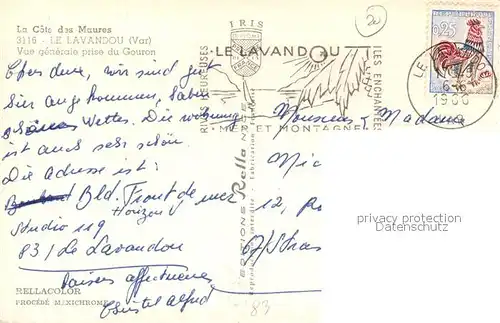 La Côte des Maures
3116 - LE LAVANDOU (Var)
Vue générale prise du Gouron
IRIS
LE LAVANDOU
RIVES HEUREUSES
ILES ENCHANTÉES
MER ET MONTAGNE
0,25
LE LAVANDOU
6-6
1966
20
wir sind gut
hier angekommen, haben
schönes Wetter. Die wohnung
ist auch sehr schön.
Die Adresse ist:
Bld. Front de mer
Horizon
Studio 119
83/Le Lavandou
baisers affectueuses
Christel Alfred
EDITIONS Rella NICE
Monsieur, Madame
Mic
12,
67/Stras
privacy protection
Datenschutz
RELLACOLOR
PROCÉDÉ MEXICHROME
83